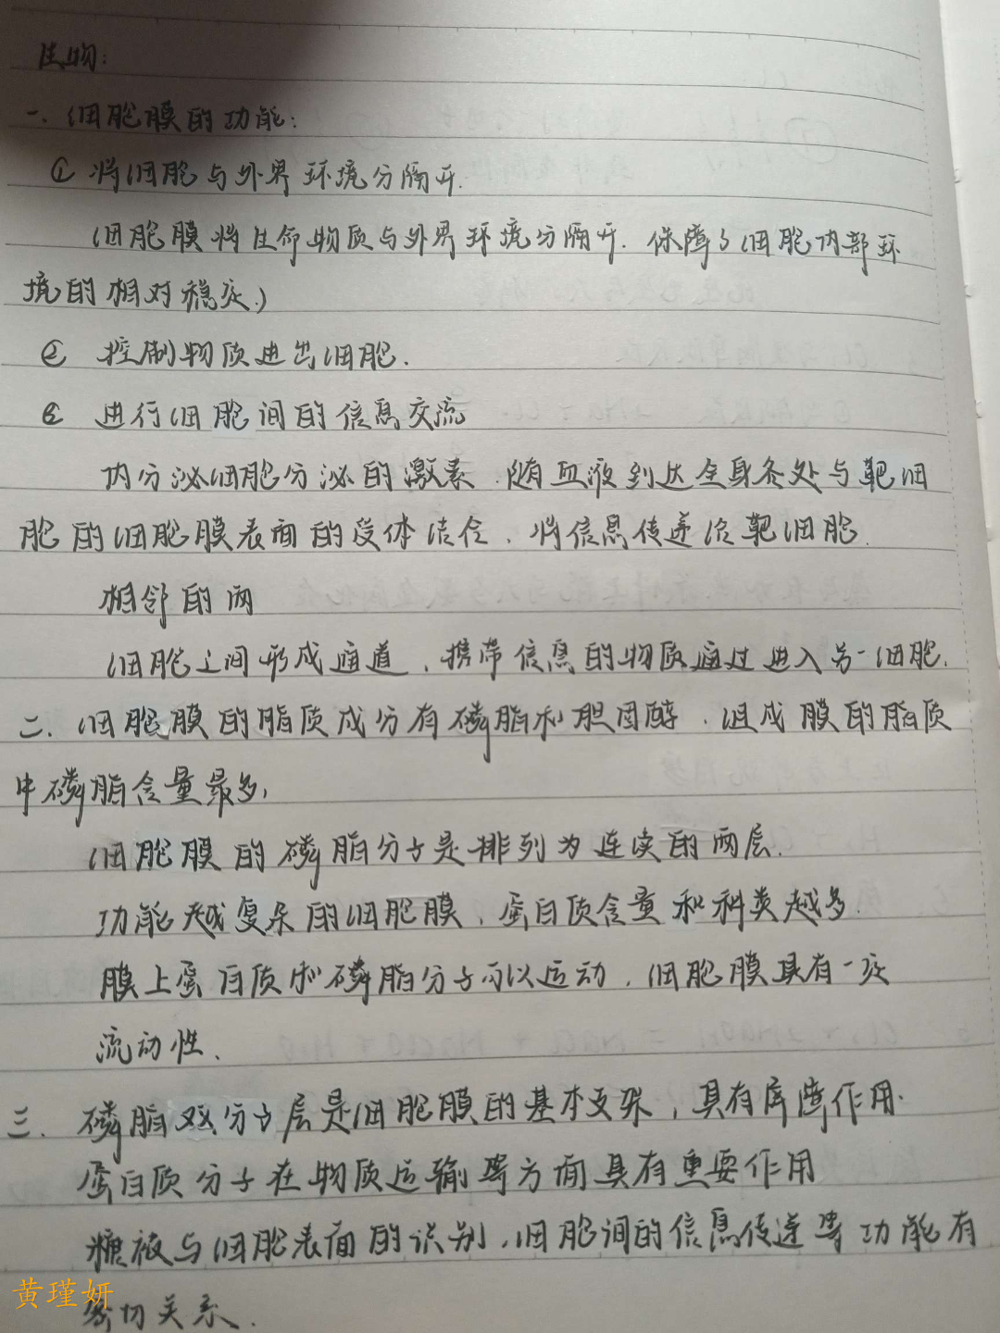 生物:
一、细胞膜的功能:
① 将细胞与外界环境分隔开.
细胞膜将生命物质与外界环境分隔开.保障了细胞内部环
境的相对稳定)
② 控制物质进出细胞.
③ 进行细胞间的信息交流
内分泌细胞分泌的激素.随血液到达全身各处与靶细
胞的细胞膜表面的受体结合、将信息传递给靶细胞.
相邻的两
细胞之间形成通道、携带信息的物质通过进入另一细胞.
二、细胞膜的脂质成分有磷脂和胆固醇.组成膜的脂质
中磷脂含量最多,
细胞膜的磷脂分子是排列为连续的两层.
功能越复杂的细胞膜、蛋白质含量和种类越多.
膜上蛋白质和磷脂分子可以运动.细胞膜具有一定
流动性.
三.磷脂双分子层是细胞膜的基本支架,具有屏障作用.
蛋白质分子在物质运输等方面具有重要作用
糖被与细胞表面的识别、细胞间的信息传递等功能有
密切关系.
黄瑾妍